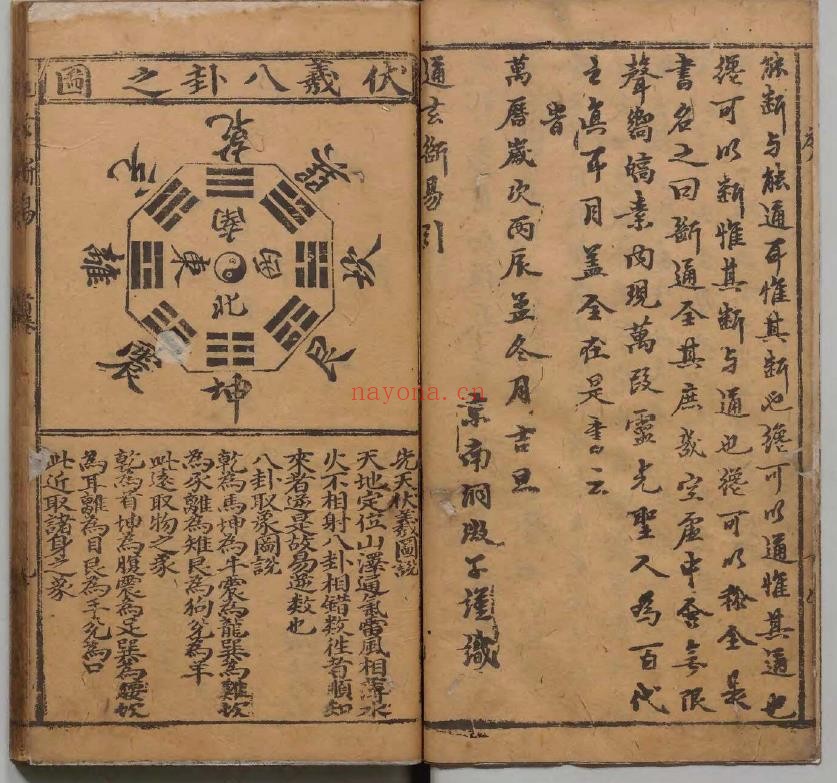 能斷与能通耳惟其斷也纔可以通惟其通也
纔可以斷惟其斷与通也纔可以稱全是
書名之曰斷通全其庶幾空虛中含無限
聲嚮縞素内現萬段靈光聖人為百代
主眞耳目蓋全在是書云
旹
萬曆歲次丙辰孟冬月吉旦
景南 子謹識
通玄斷易引
伏羲八卦之圖
乾
兌
離
震
坤
艮
坎
巽
南
東
西
北
先天伏羲圖説
天地定位山澤通氣雷風相薄水
火不相射八卦相錯数徃者順知
來者逆是故易逆数也
八卦取象圖説
乾為馬坤為牛震為龍巽為雞坎
為豕離為雉艮為狗兌為羊
此遠取物之象
乾為首坤為腹震為足巽為腰坎
為耳離為目艮為手兌為口
此近取諸身之象
nayona.cn